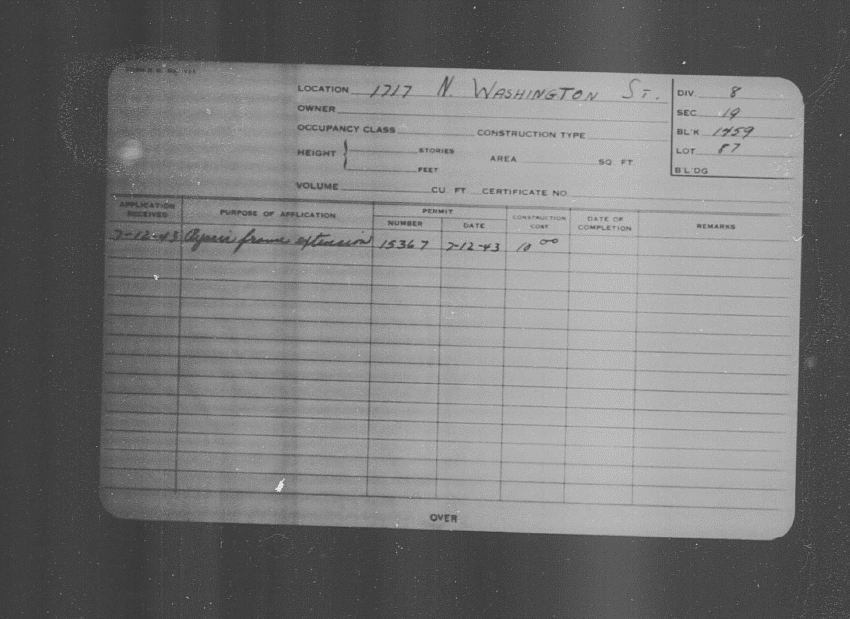 LOCATION 1717 N. WASHINGTON ST.
OWNER
OCCUPANCY CLASS CONSTRUCTION TYPE
HEIGHT STORIES FEET AREA SQ. FT.
VOLUME CU. FT. CERTIFICATE NO.
DIV. 8
SEC. 19
BL'K 1459
LOT 87
BLDG
APPLICATION RECEIVED PURPOSE OF APPLICATION PERMIT NUMBER DATE CONSTRUCTION COST DATE OF COMPLETION REMARKS
7-12-43 Repair frame extension 15367 7-12-43 10 00
OVER